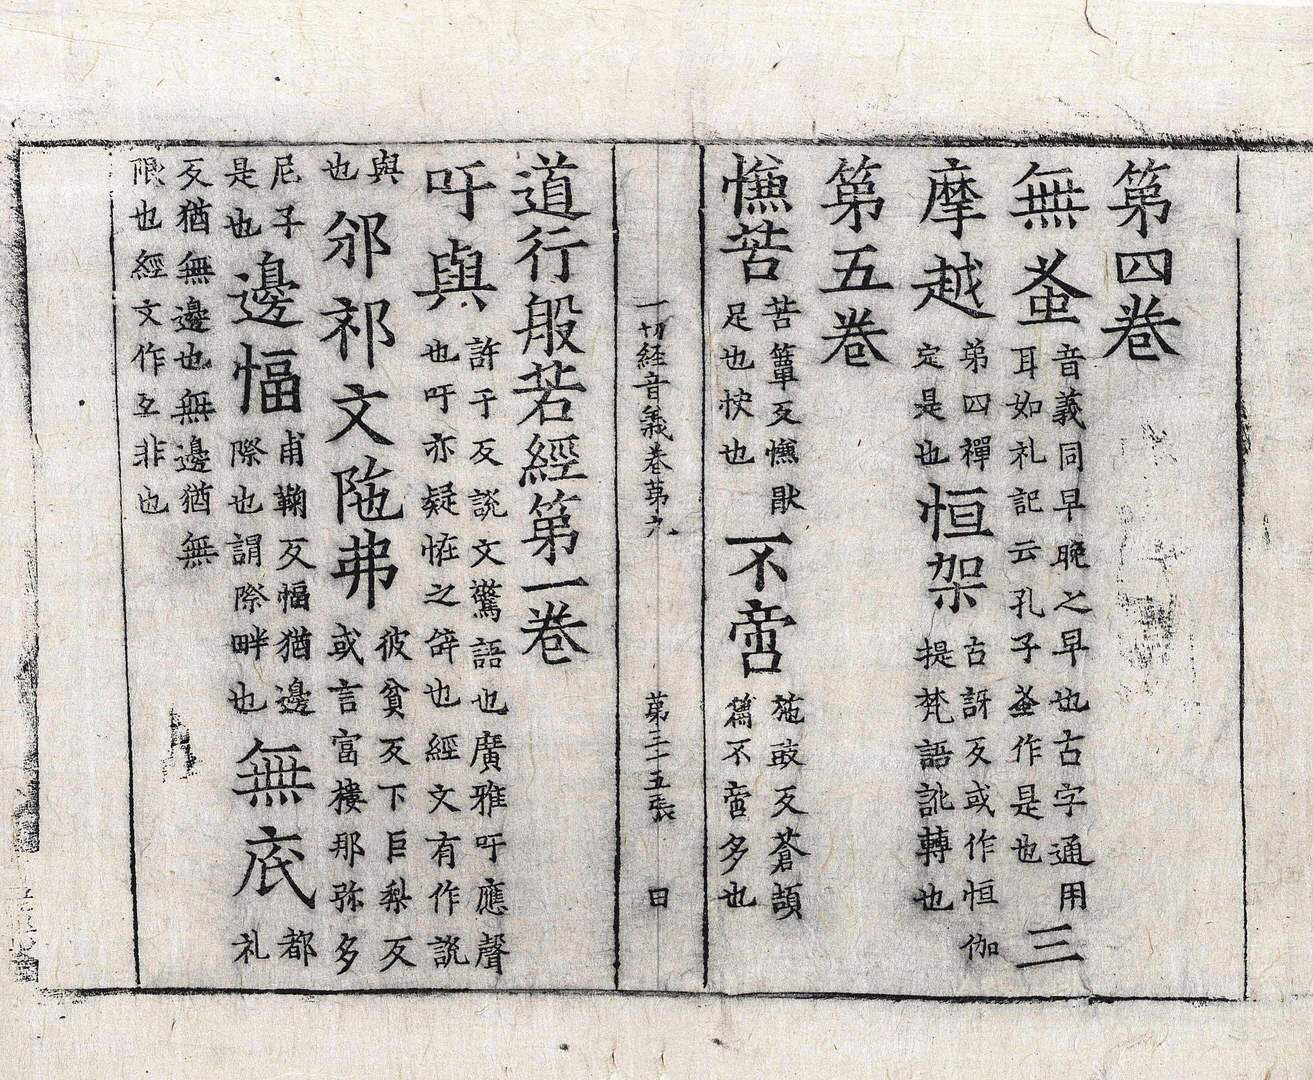 第四卷
無蚤音義同早晚之早也古字通用耳如礼記云孔子蚤作是也三
摩越弟四禪定是也恒架古訝反或作恒伽提梵語訛轉也
第五卷
慊苦苦簟反慊猒足也快也不啻施豉反蒼頡篇不啻多也
一切経音義卷第九 第三十五張 曰
道行般若經第一卷
吁與許于反說文驚語也廣雅吁應聲也吁亦疑恠之辝也經文有作說
與也邠祁文陁弗彼貧反下巨梨反或言富樓那弥多
尼子是也邊幅甫鞠反幅猶邊際也謂際畔也無底都礼
反猶無邊也無邊猶無限也經文作互非也